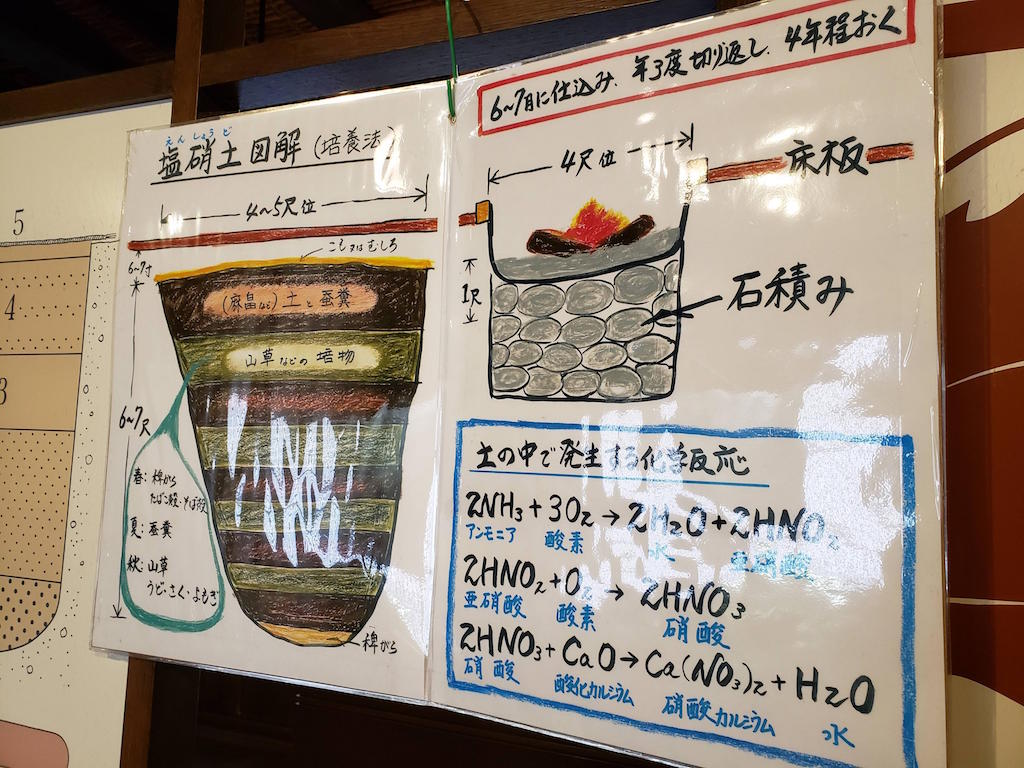 えんしょうど
塩硝土図解(培養法)
4〜5尺位
こも又はむしろ
6〜7寸
(麻畠など)土と蚕糞
山草などの培物
6〜7尺
春:稗がら
たばこ殻・そば殻
夏:蚕糞
秋:山草
うど・さく・よもぎ
稗がら
6〜7月に仕込み、年3度切り返し、4年程おく
4尺位
床板
1尺
石積み
土の中で発生する化学反応
2NH₃+3O₂→2H₂O+2HNO₂
アンモニア 酸素 水 亜硝酸
2HNO₂+O₂→2HNO₃
亜硝酸 酸素 硝酸
2HNO₃+CaO→Ca(NO₃)₂+H₂O
硝酸 酸化カルシウム 硝酸カルシウム 水
5
4
3